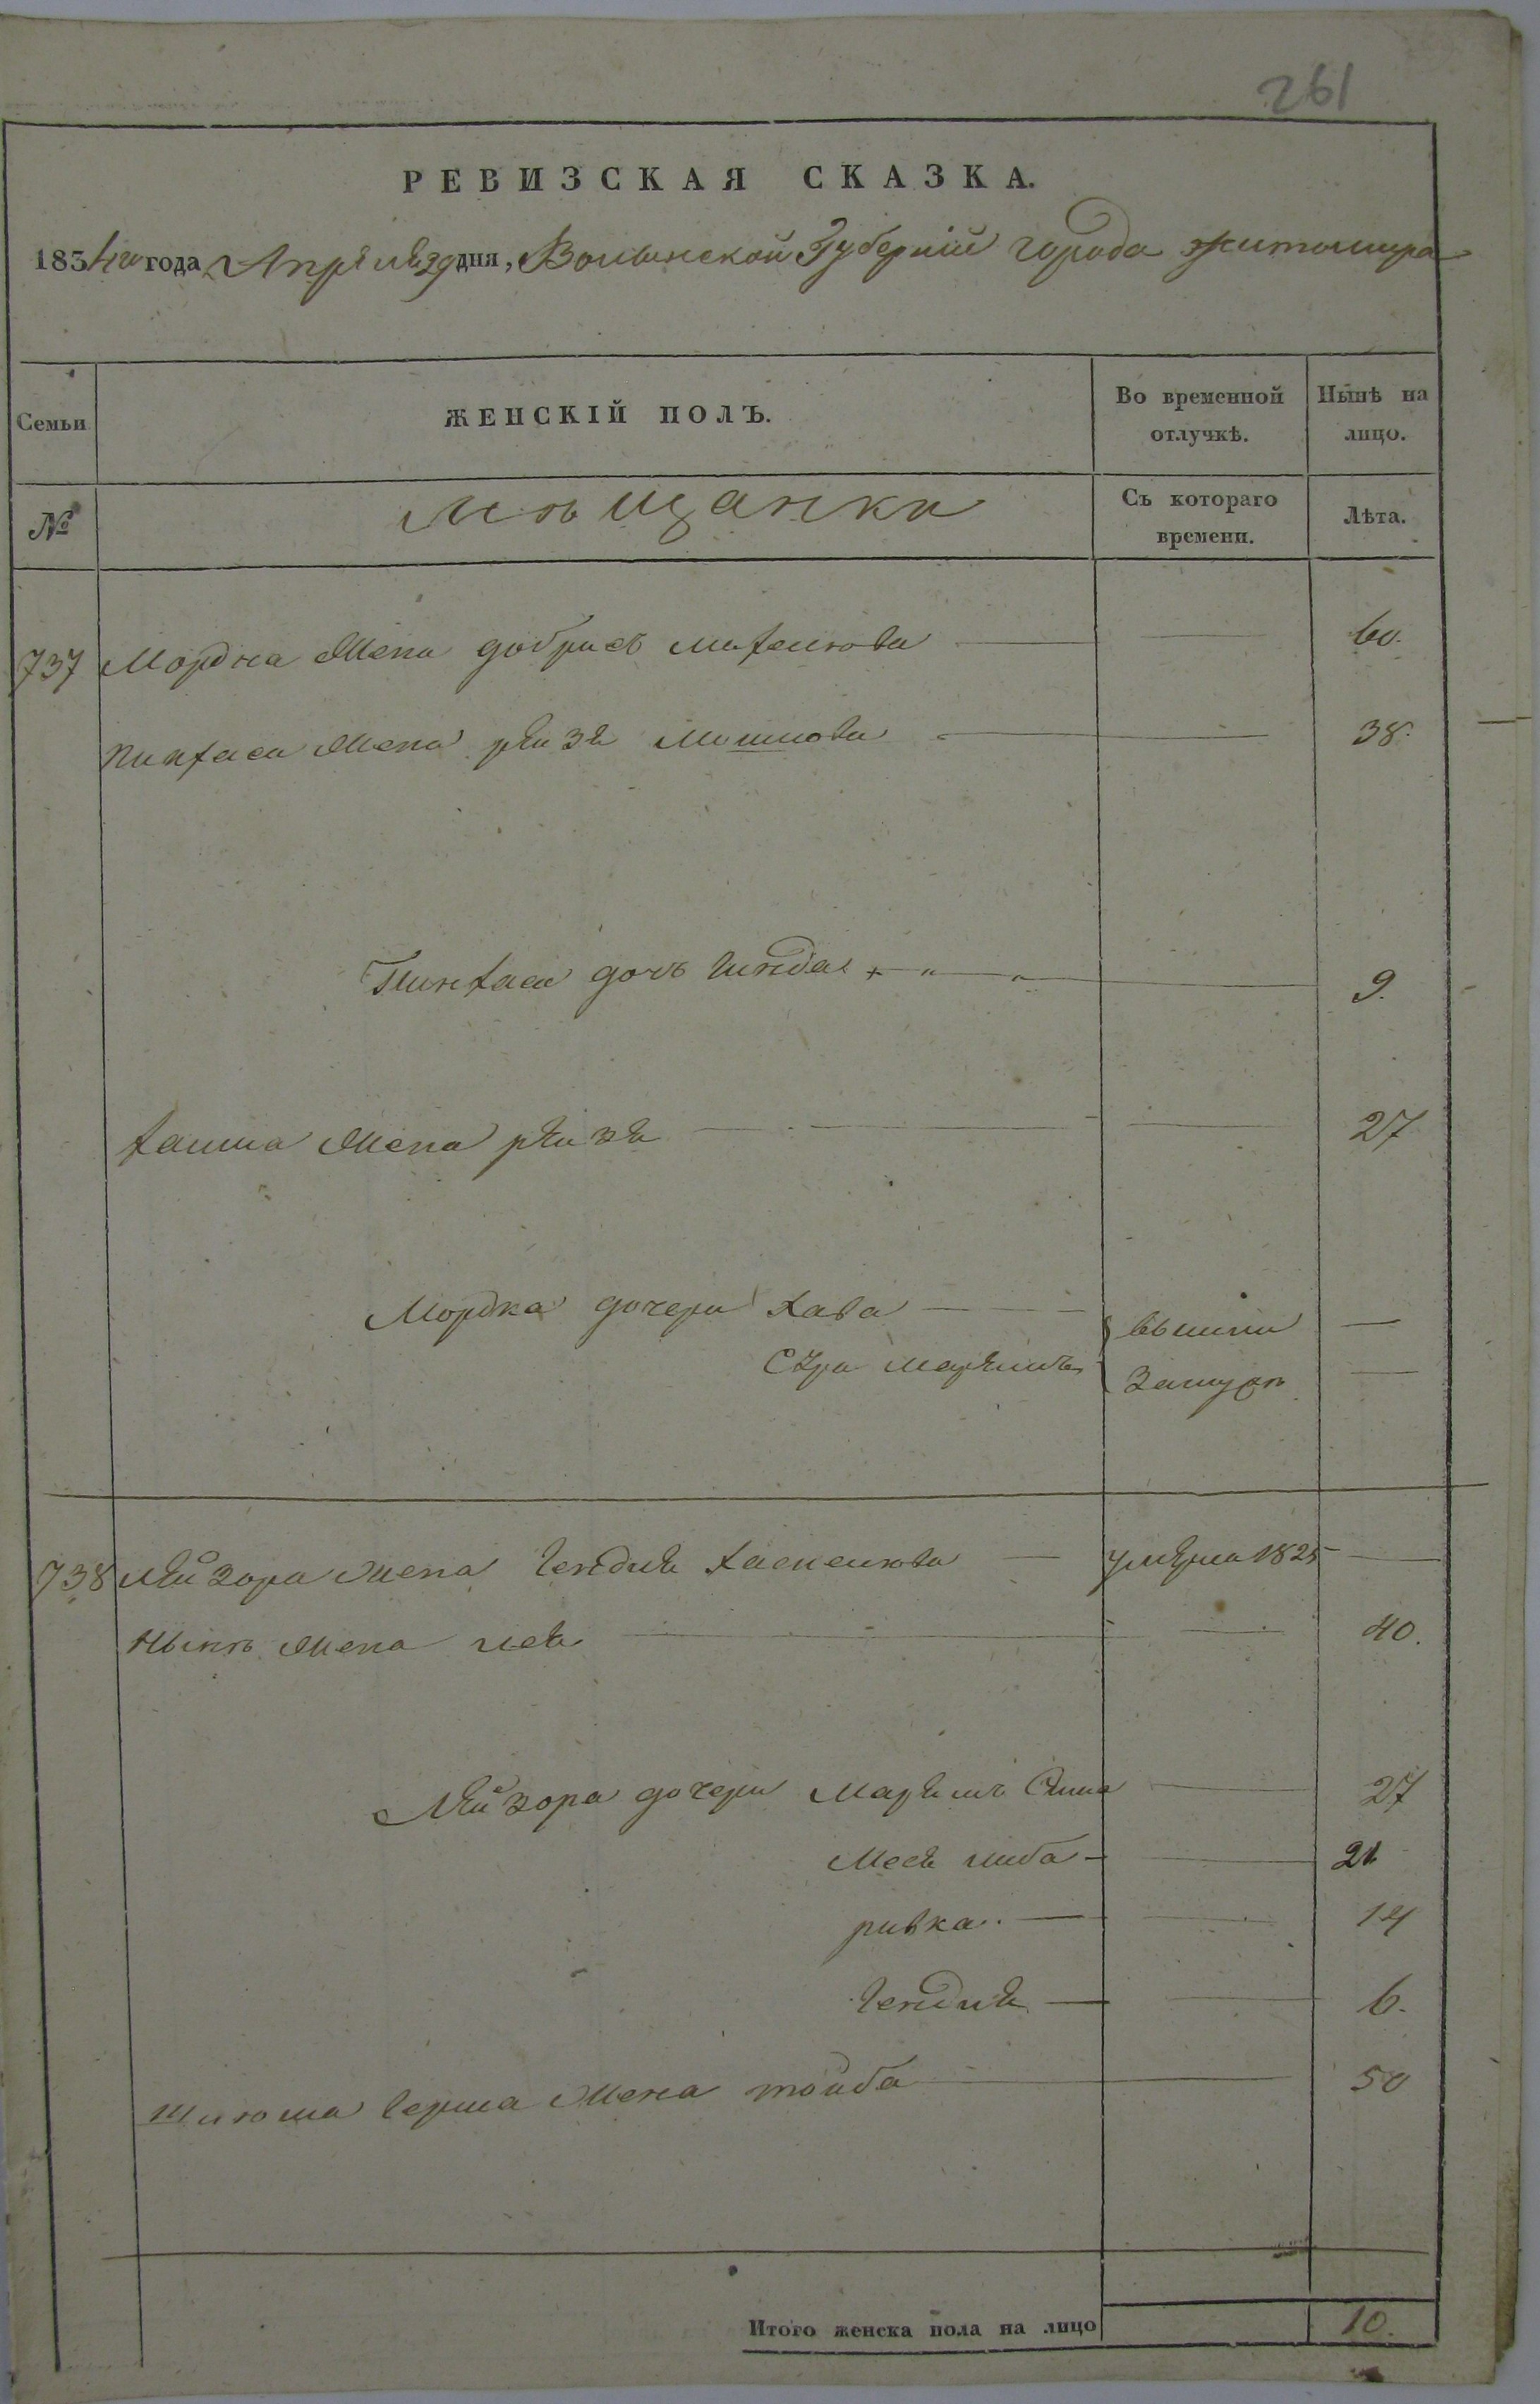 261
РЕВИЗСКАЯ СКАЗКА.
1834го года Апреля 29 дня, Волынской Губернiи города Житомира
Семьи
ЖЕНСКІЙ ПОЛЪ.
Во временной отлучкѣ.
Нынѣ на лицо.
№
Мѣщанки
Съ котораго времени.
Лѣта.
737 Мордка Жена добрисъ 60.
Пинхаса Жена рейзя Мошкова 38.
Пинхаса дочъ 9.
Хаима Жена рейзя 27
Мордка дочери Хава вышли —
Сура Маръямъ Замужъ —
738 Лейзора Жена Гендля умерла 1825 —
Нынѣ Жена лея 40.
Лейзора дочери Маръямъ 27
либа 21
ривка. 14
Гендля 6.
Шлюма Герша Жена тойба 50
Итого женска пола на лицо 10.